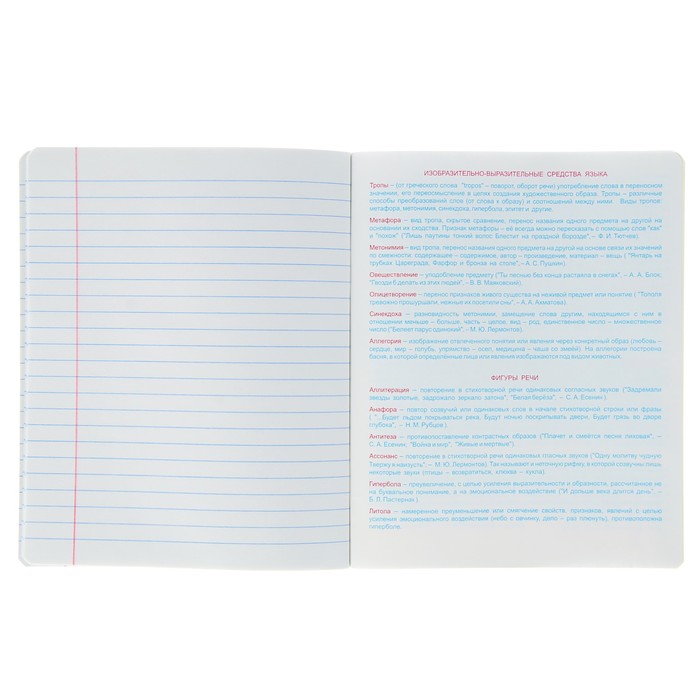 ИЗОБРАЗИТЕЛЬНО-ВЫРАЗИТЕЛЬНЫЕ СРЕДСТВА ЯЗЫКА
Тропы – (от греческого слова "tropos" – поворот, оборот речи) употребление слова в переносном
значении, его переосмысление в целях создания художественного образа. Тропы – различные
способы преобразований слов (от слова к образу) и соотношений между ними. Виды тропов:
метафора, метонимия, синекдоха, гипербола, эпитет и другие.
Метафора – вид тропа, скрытое сравнение, перенос названия одного предмета на другой на
основании их сходства. Признак метафоры – её всегда можно пересказать с помощью слов "как"
и "похож" ("Лишь паутины тонкий волос Блестит на праздной борозде", – Ф. И. Тютчев).
Метонимия – вид тропа, перенос названия одного предмета на другой на основе связи их значений
по смежности: содержащее – содержимое, автор – произведение, материал – вещь ( "Янтарь на
трубках Цареграда, Фарфор и бронза на столе", – А. С. Пушкин).
Овеществление – уподобления предмету ("Ты песнью без конца растаяла в снегах", – А. А. Блок,
"Гвозди б делать из этих людей", – В. В. Маяковский).
Олицетворение – перенос признаков живого существа на неживой предмет или понятие ( "Тополя
тревожно прошуршали, нежные их посетили сны", – А. А. Ахматова).
Синекдоха – разновидность метонимии, замещение слова другим, находящимся с ним в
отношении меньше – больше, часть – целое, вид – род, единственное число – множественное
число ("Белеет парус одинокий", – М. Ю. Лермонтов).
Аллегория – изображение отвлеченного понятия или явления через конкретный образ (любовь –
сердце, мир – голубь, упрямство – осел, медицина – чаша со змеей). На аллегории построена
басня, в которой определённые лица или явления изображаются под видом животных.
ФИГУРЫ РЕЧИ
Аллитерация – повторение в стихотворной речи одинаковых согласных звуков ("Задремали
звезды золотые, задрожало зеркало затона", "Белая берёза", – С. А. Есенин ).
Анафора – повтор созвучий или одинаковых слов в начале стихотворной строки или фразы
( ".. Будет льдом покрываться река, Будут ночью поскрипывать двери, Будет грязь во дворе
глубока", – Н. М. Рубцов ).
Антитеза – противопоставление контрастных образов ("Плачет и смеётся песня лиховая", –
С. А. Есенин; "Война и мир", "Живые и мертвые").
Ассонанс – повторение в стихотворной речи одинаковых гласных звуков ("Одну молитву чудную
Твержу я наизусть", – М. Ю. Лермонтов). Так называют и неточную рифму, в которой созвучны лишь
некоторые звуки (птицы – возвратиться, клюква – кукла).
Гипербола – преувеличение, с целью усиления выразительности и образности, рассчитанное не
на буквальное понимание, а на эмоциональное воздействие ("И дольше века длится день", –
Б. Л. Пастернак ).
Литота – намеренное преуменьшение или смягчение свойств, признаков, явлений с целью
усиления эмоционального воздействия (небо с овчинку, дело – раз плюнуть), противоположна
гиперболе.